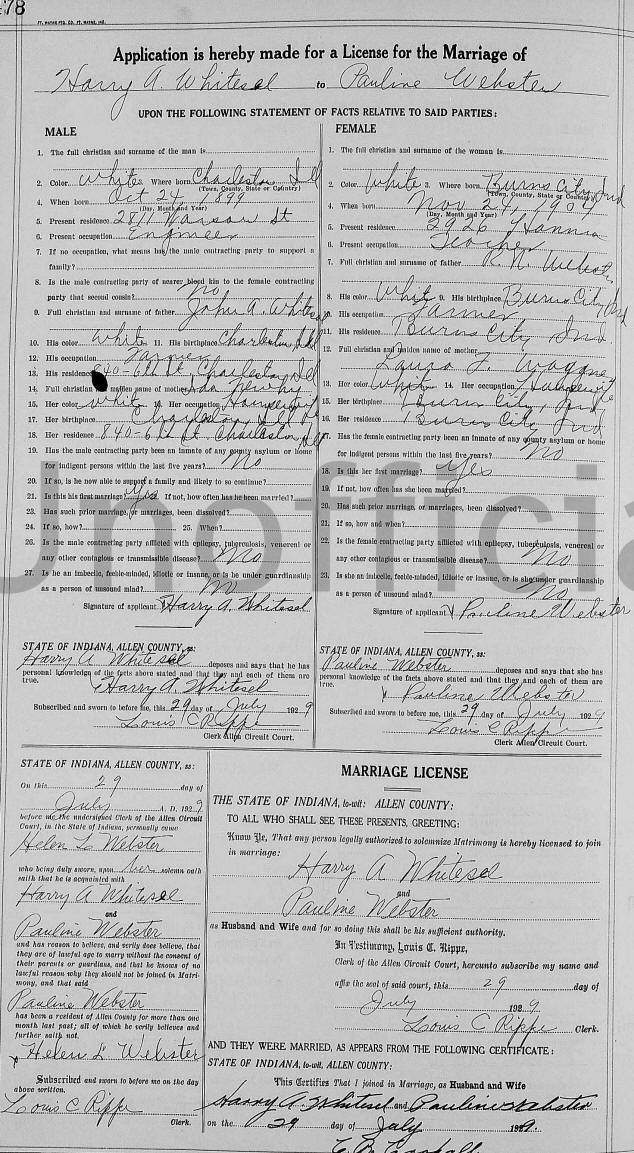 78
FT. WAYNE PTG. CO. FT. WAYNE, IND.
Application is hereby made for a License for the Marriage of
Harry A. Whitesel to Pauline Webster
UPON THE FOLLOWING STATEMENT OF FACTS RELATIVE TO SAID PARTIES:
MALE
1. The full christian and surname of the man is
2. Color White Where born Charleston Ill
(Town, County, State or Country)
4. When born Oct 24, 1899
(Day, Month and Year)
5. Present residence 2811 St
6. Present occupation Engineer
7. If no occupation, what means has the male contracting party to support a
family?
8. Is the male contracting party of nearer blood kin to the female contracting
party than second cousin? No
9. Full christian and surname of father John A. Whitesel
10. His color White 11. His birthplace Charleston Ill
12. His occupation Farmer
13. His residence 840-6th St. Charleston Ill
14. Full christian and maiden name of mother Ada
15. Her color White 16. Her occupation Housewife
17. Her birthplace Charleston, Ill
18. Her residence 840-6th St. Charleston, Ill
19. Has the male contracting party been an inmate of any county asylum or home
for indigent persons within the last five years? No
20. If so, is he now able to support a family and likely to so continue?
21. Is this his first marriage? Yes If not, how often has he been married?
23. Has such prior marriage, or marriages, been dissolved?
24. If so, how? 25. When?
26. Is the male contracting party afflicted with epilepsy, tuberculosis, venereal or
any other contagious or transmissible disease? No
27. Is he an imbecile, feeble-minded, idiotic or insane, or is he under guardianship
as a person of unsound mind? No
Signature of applicant Harry A. Whitesel
FEMALE
1. The full christian and surname of the woman is
2. Color White 3. Where born Burns City, Ind
(Town, County, State or Country)
4. When born Nov 24, 1904
(Day, Month and Year)
5. Present residence 2926 Hanna
6. Present occupation Teacher
7. Full christian and surname of father R. Webster
8. His color White 9. His birthplace Burns City, Ind
10. His occupation Farmer
11. His residence Burns City, Ind.
12. Full christian and maiden name of mother
Laura F.
13. Her color White 14. Her occupation Housewife
15. Her birthplace Burns City, Ind
16. Her residence Burns City, Ind
17. Has the female contracting party been an inmate of any county asylum or home
for indigent persons within the last five years? No
18. Is this her first marriage? Yes
19. If not, how often has she been married?
20. Has such prior marriage, or marriages, been dissolved?
21. If so, how and when?
22. Is the female contracting party afflicted with epilepsy, tuberculosis, venereal or
any other contagious or transmissible disease? No
23. Is she an imbecile, feeble-minded, idiotic or insane, or is she under guardianship
as a person of unsound mind? No
Signature of applicant Pauline Webster
STATE OF INDIANA, ALLEN COUNTY, ss:
Harry A Whitesel deposes and says that he has
personal knowledge of the facts above stated and that they and each of them are
true.
Harry A. Whitesel
Subscribed and sworn to before me, this 29 day of July 1929
Louis C Rippe
Clerk Allen Circuit Court.
STATE OF INDIANA, ALLEN COUNTY, ss:
Pauline Webster deposes and says that she has
personal knowledge of the facts above stated and that they and each of them are
true.
Pauline Webster
Subscribed and sworn to before me, this 29 day of July 1929
Louis C Rippe
Clerk Allen Circuit Court.
STATE OF INDIANA, ALLEN COUNTY, ss:
On this 29 day of
July A. D. 1929
before me the undersigned Clerk of the Allen Circuit
Court, in the State of Indiana, personally came
Helen L Webster
who being duly sworn, upon her solemn oath
saith that he is acquainted with
Harry A Whitesel
and
Pauline Webster
and has reason to believe, and verily does believe, that
they are of lawful age to marry without the consent of
their parents or guardians, and that he knows of no
lawful reason why they should not be joined in Matri-
mony, and that said
Pauline Webster
has been a resident of Allen County for more than one
month last past; all of which he verily believes and
further saith not.
Helen L. Webster
Subscribed and sworn to before me on the day
above written.
Louis C Rippe
Clerk.
MARRIAGE LICENSE
THE STATE OF INDIANA, to-wit: ALLEN COUNTY:
TO ALL WHO SHALL SEE THESE PRESENTS, GREETING:
Know Ye, That any person legally authorized to solemnize Matrimony is hereby licensed to join
in marriage:
Harry A Whitesel
and
Pauline Webster
as Husband and Wife and for so doing this shall be his sufficient authority.
In Testimony, Louis C. Rippe,
Clerk of the Allen Circuit Court, hereunto subscribe my name and
affix the seal of said court, this 29 day of
July 1929
Louis C Rippe Clerk.
AND THEY WERE MARRIED, AS APPEARS FROM THE FOLLOWING CERTIFICATE:
STATE OF INDIANA, to-wit, ALLEN COUNTY:
This Certifies That I joined in Marriage, as Husband and Wife
Harry A. Whitesel and Pauline Webster
on the 29 day of July 1929.
Unofficia